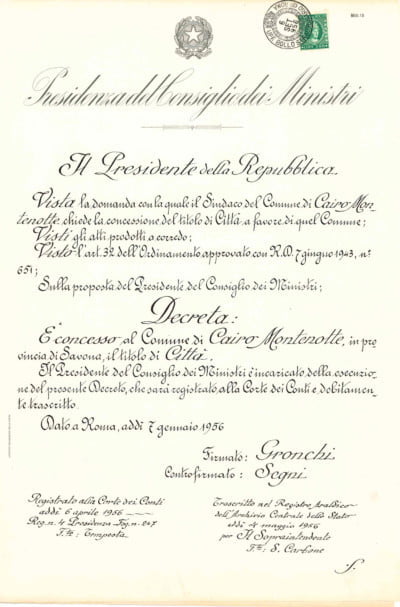 Presidenza del Consiglio dei Ministri
Il Presidente della Repubblica
Vista la domanda con la quali il Sindaco del Comune di Cairo Mon-
tenotte, chiede la concessione del titolo di Città a favore di quel Comune;
Visti gli atti prodotti a corredo;
Visto l'art. 32 dell'Ordinamento approvato con R.D. 7 giugno 1943, n°
651;
Sulla proposta del Presidente del Consiglio dei Ministri;
Decreta:
E' concesso al Comune di Cairo Montenotte, in pro
vincia di Savona, il titolo di Città.
Il Presidente del Consiglio dei Ministri è incaricato della esecuzio-
ne del presente Decreto, che sarà registrato alla Corte dei Conti e debitamen-
te trascritto.
Dato a Roma, addì 7 gennaio 1956
Firmato: Gronchi
Controfirmato: Segni
Registrato alla Corte dei Conti
addì 6 aprile 1956
Reg. n. 4 Presidenza Fog. n. 247
F.to: Temposta
Trascritto nel Registro Araldico
dell'Archivio Centrale dello Stato
addì 4 maggio 1956
per Il Sopraintendente
F.to: S. Carbone